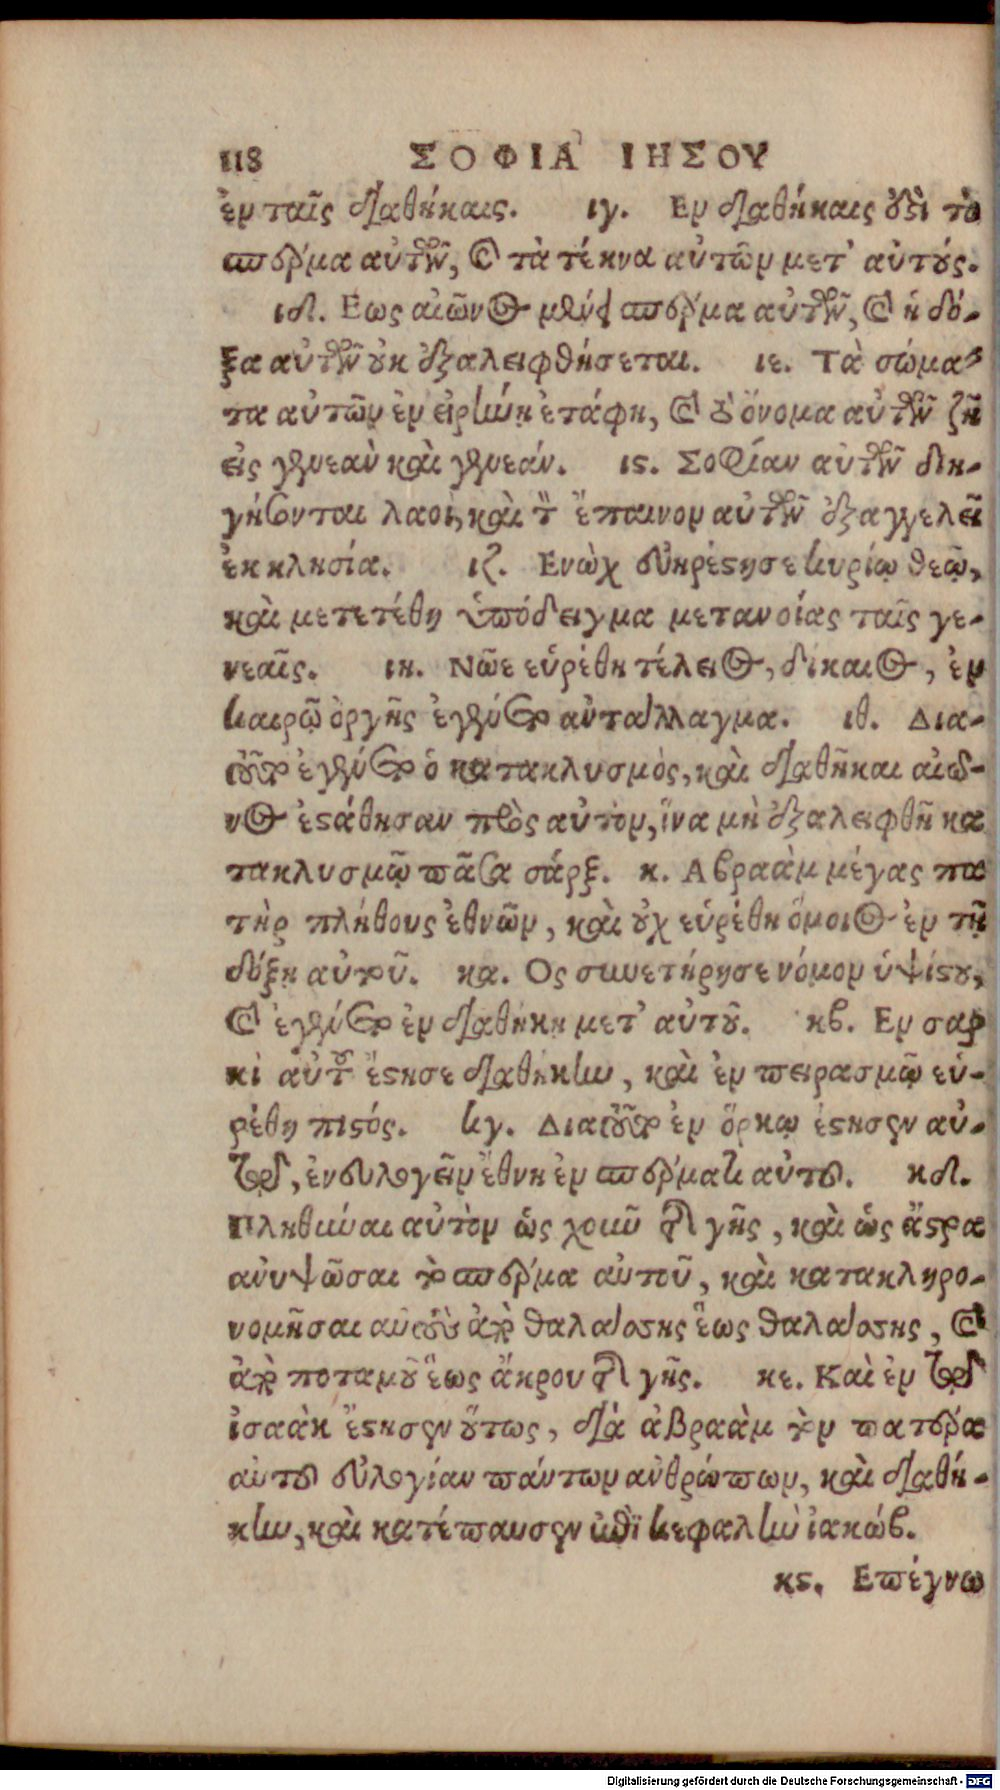 118 ΣΟΦΙΑ ΙΗΣΟΥ
ἐν ταῖς διαθήκαις. ιγ. Εν διαθήκαις ἔϛι τὸ
σπέρμα αὐτῶν, καὶ τὰ τέκνα αὐτῶν μετ' αὐτούς.
ιδ. Εως αἰῶνος μενεῖ σπέρμα αὐτῶν, καὶ ἡ δό-
ξα αὐτῶν οὐκ ἐξαλειφθήσεται. ιε. Τὰ σώμα-
τα αὐτῶν ἐν εἰρήνῃ ἐτάφη, καὶ τὸ ὄνομα αὐτῶν ζῇ
εἰς γενεὰν καὶ γενεάν. ιϛ. Σοφίαν αὐτῶν διη-
γήσονται λαοὶ, καὶ τὸν ἔπαινον αὐτῶν ἐξαγγελεῖ
ἐκκλησία. ιζ. Ενὼχ εὐηρέϛησε κυρίῳ θεῷ,
καὶ μετετέθη ὑπόδειγμα μετανοίας ταῖς γε-
νεαῖς. ιη. Νῶε εὑρέθη τέλειος, δίκαιος, ἐν
καιρῷ ὀργῆς ἐγένετο ἀντάλλαγμα. ιθ. Δια-
τοῦτο ἐγένετο ὁ κατακλυσμὸς, καὶ διαθῆκαι αἰῶ-
νος ἐϛάθησαν πρὸς αὐτὸν, ἵνα μὴ ἐξαλειφθῇ κα
τακλυσμῷ πᾶσα σάρξ. κ. Αβραὰμ μέγας πα
τὴρ πλήθους ἐθνῶν, καὶ οὐχ εὑρέθη ὅμοιος ἐν τῇ
δόξῃ αὐτοῦ. κα. Ος συνετήρησε νόμον ὑψίϛου,
καὶ ἐγένετο ἐν διαθήκῃ μετ' αὐτοῦ. κβ. Εν σαρ
κὶ αὐτοῦ ἔϛησε διαθήκην, καὶ ἐν πειρασμῷ εὑ-
ρέθη πιϛός. κγ. Διατοῦτο ἐν ὅρκῳ ἔϛησεν αὐ-
τῷ, ἐνευλογεῖν ἔθνη ἐν σπέρματι αὐτοῦ. κδ.
Πληθῦναι αὐτὸν ὡς χοῦν τῆς γῆς, καὶ ὡς ἄϛρα
ἀνυψῶσαι τὸ σπέρμα αὐτοῦ, καὶ κατακληρο-
νομῆσαι αὐτοὺς ἀπὸ θαλάσσης ἕως θαλάσσης, καὶ
ἀπὸ ποταμοῦ ἕως ἄκρου τῆς γῆς. κε. Καὶ ἐν τῷ
ἰσαὰκ ἔϛησεν οὕτως, διὰ ἀβραὰμ τὸν πατέρα
αὐτοῦ εὐλογίαν πάντων ἀνθρώπων, καὶ διαθή-
κην, καὶ κατέπαυσεν ἐπὶ κεφαλὴν ἰακώβ.
κϛ. Επέγνω
Digitalisierung gefördert durch die Deutsche Forschungsgemeinschaft - DFG